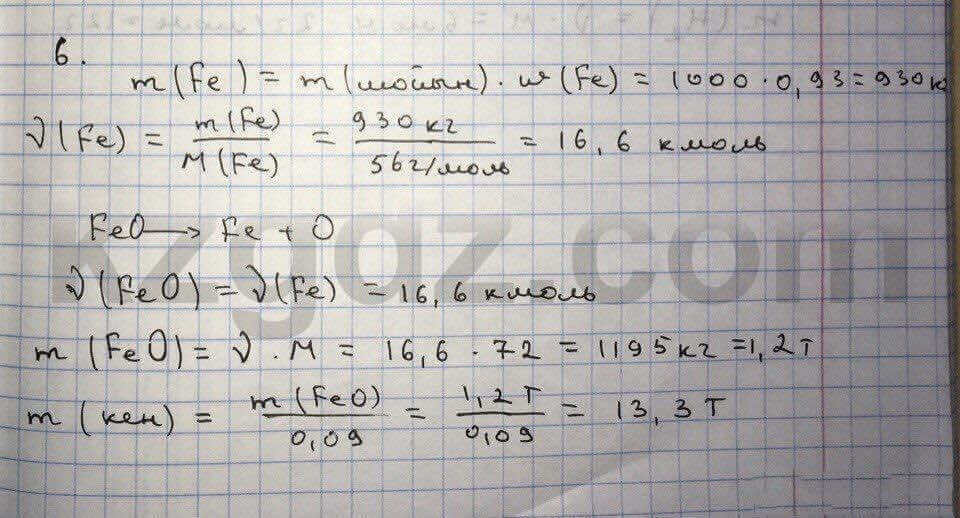 6.
m (Fe) = m (шойын) · w (Fe) = 1000 · 0,93 = 930 к
ν (Fe) = m (Fe) / M (Fe) = 930 кг / 56 г/моль = 16,6 кмоль
FeO → Fe + O
ν (FeO) = ν (Fe) = 16,6 кмоль
m (FeO) = ν · M = 16,6 · 72 = 1195 кг = 1,2 т
m (кен) = m (FeO) / 0,09 = 1,2 т / 0,09 = 13,3 т